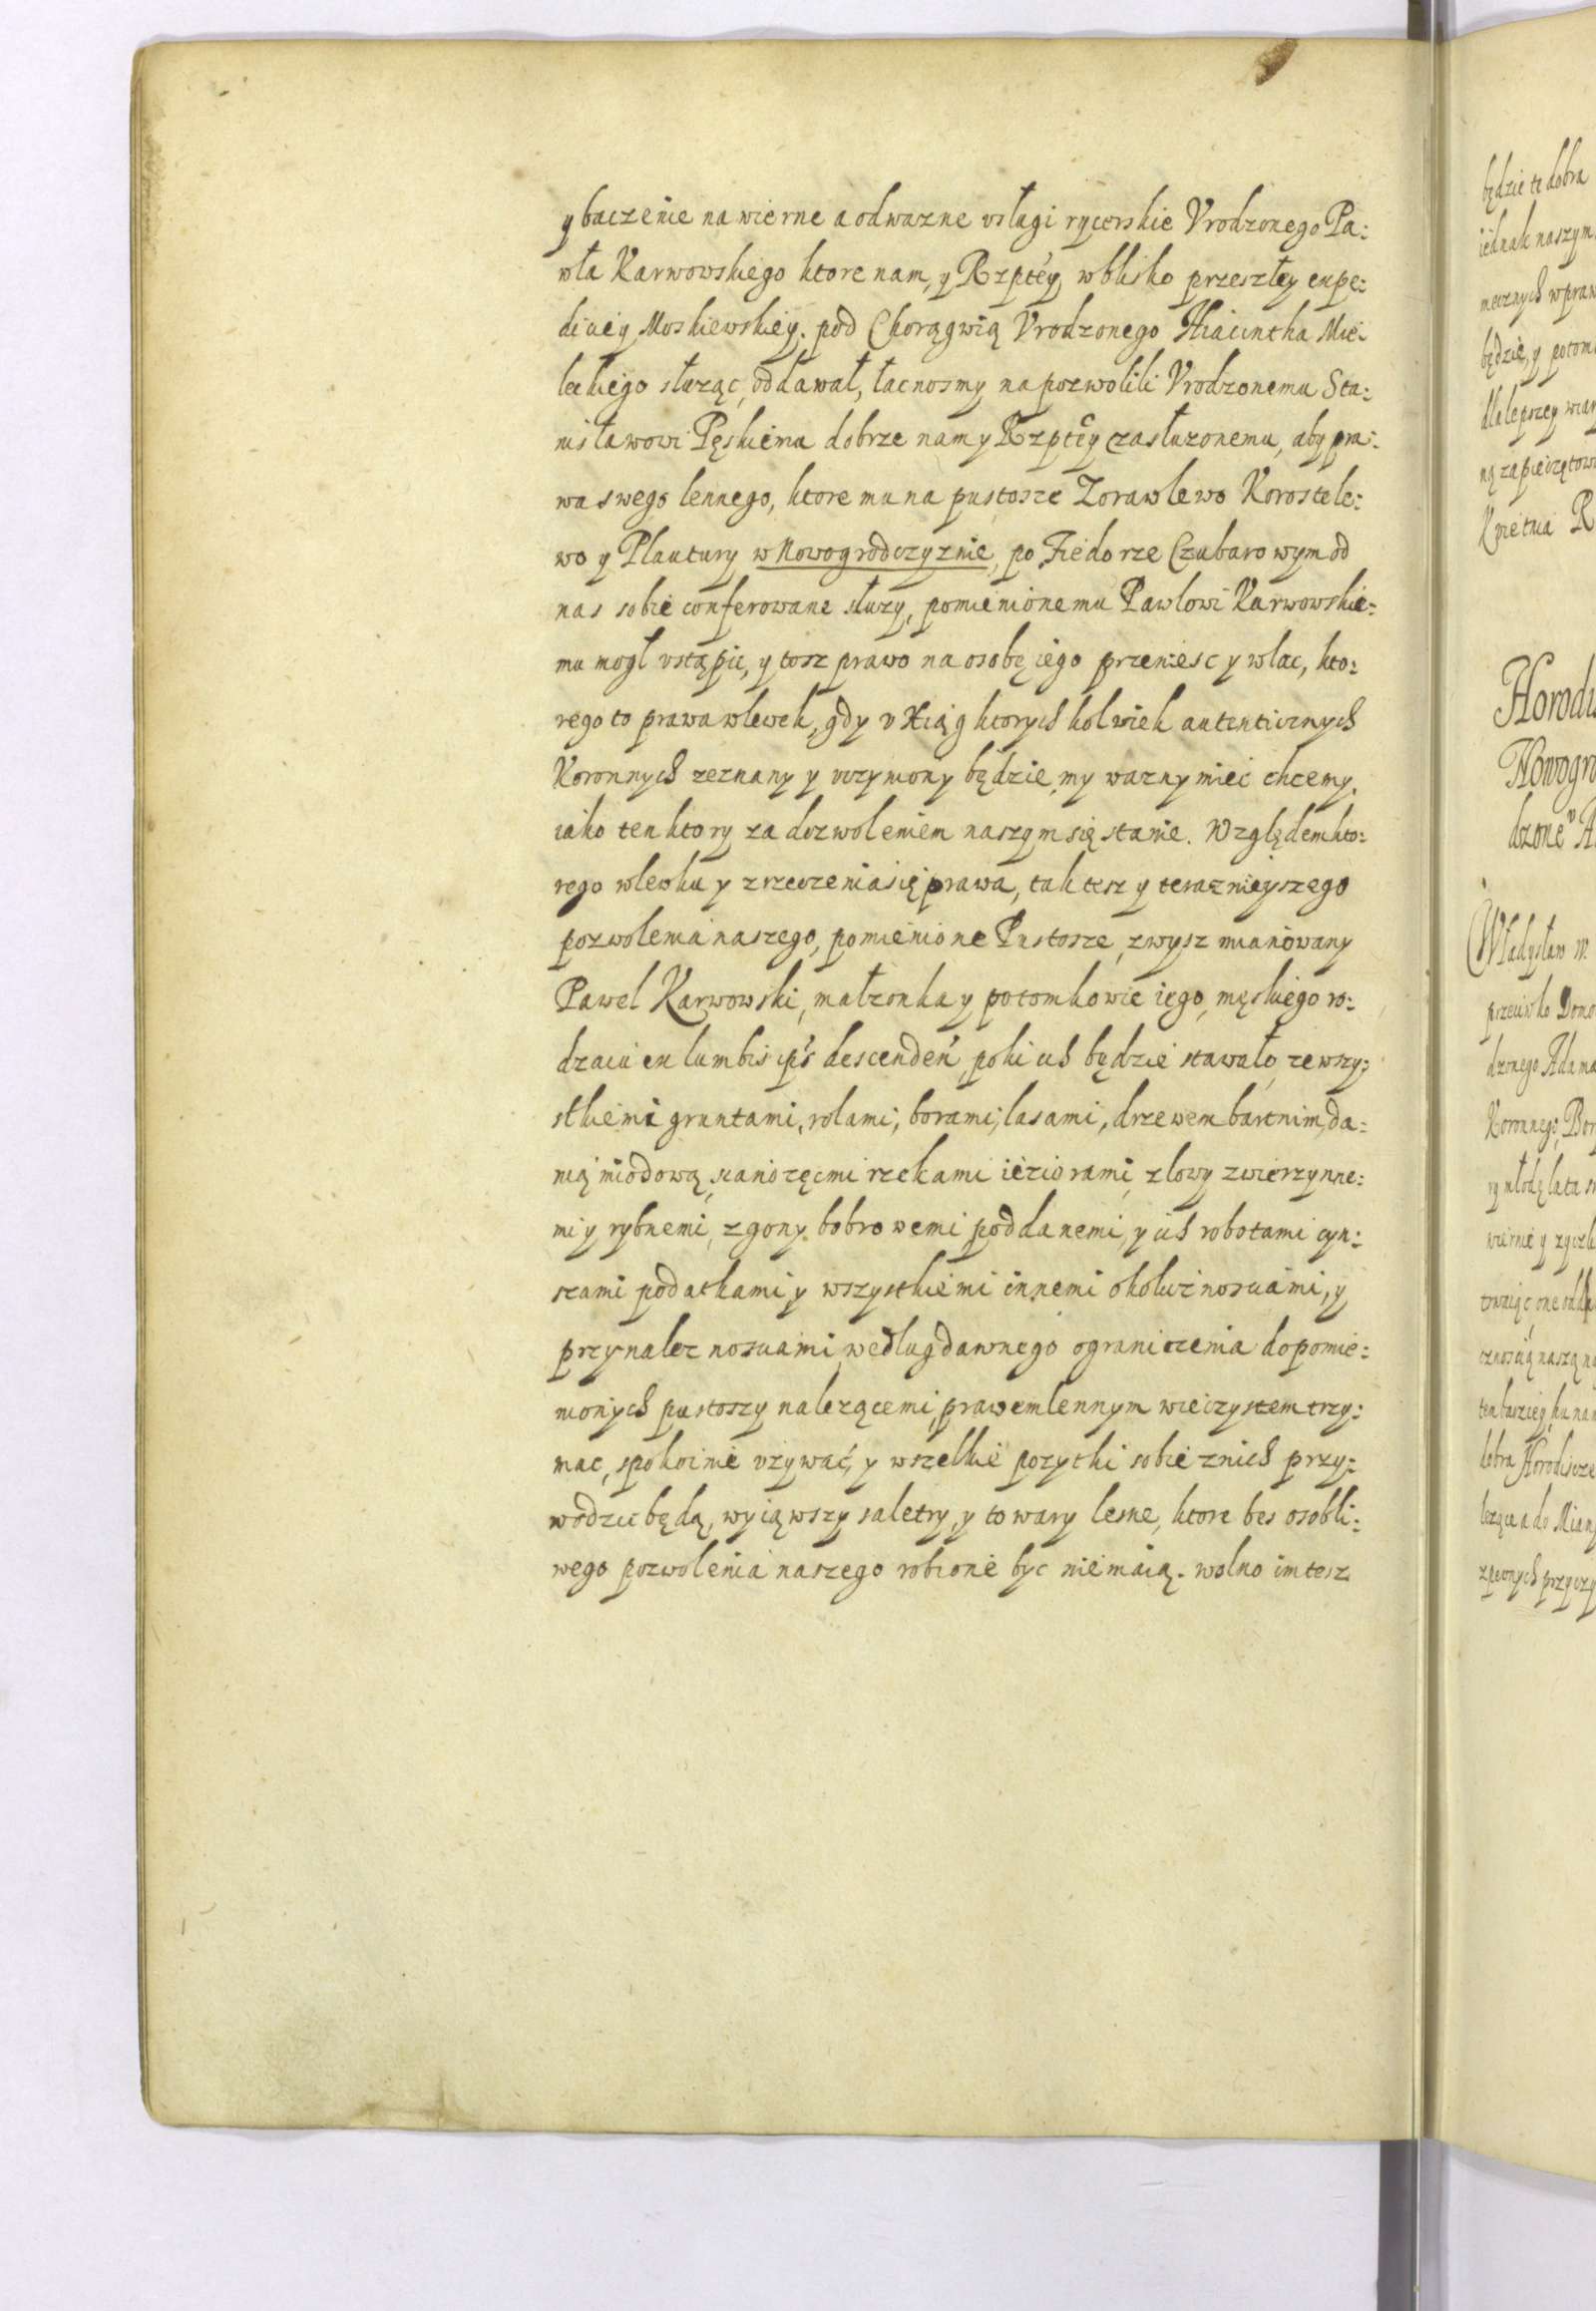 y baczenie na wierne a odwazne vsługi rycerskie Vrodzonego Pa:
wła Karwowskiego ktore nam, y Rzptey, w blisko przeszłey expe:
diciey Moskiewskiey. pod Chorągwią Vrodzonego Hiacintha Mie:
leckiego służąc, oddawał, łacnosmy na pozwolili Vrodzonemu Sta:
nisławowi Pęskiemu dobrze nam y Rzptey zasłuzonemu, aby pra:
wa swego lennego, ktore mu na pustosze Zorawlewo Korostele:
wo y Plautury w Nowogrodczyznie, po Fiedorze Czubarowym od
nas sobie conferowane słuzy, pomienionemu Pawlowi Karwowskie:
mu mogł vstąpic, y tosz prawo na osobę iego przeniesc y wlac, kto:
rego to prawa wlewek, gdy v Xiąg ktorych kolwiek autenticznych
Koronnych zeznany y vczyniony będzie, my wazny miec chcemy,
iako ten ktory za dozwoleniem naszym się stanie. Względem kto:
rego wlewku y zrzeczenia się prawa, tak tesz y teraznieyszego
pozwolenia naszego, pomienione Pustosze, zwysz mianowany
Pawel Karwowski, małzonka y potomkowie iego, męskiego ro:
dzaiu ex lumbis ips descenden, poki ich będzie stawało, ze wszy:
stkiemi gruntami, rolami, borami, lasami, drzewem bartnim, da:
nią miodową, sianozęcmi rzekami ieziorami, z lowy zwierzynne:
mi y rybnemi, z gony bobrowemi poddanemi, y ich robotami czyn:
szami podatkami y wszystkiemi innemi okolicznosciami, y
przynaleznosciami, według dawnego ograniczenia do pomie:
nionych pustoszy nalezącemi, prawem lennym wieczystem trzy:
mac, spokoinie vzywać, y wszelkie pozytki sobie z nich przy:
wodzic będą, wyiąwszy saletry, y towary lesne, ktore bes osobli:
wego pozwolenia naszego robione byc nie maią. wolno im tesz
będzie te dobra
iednak naszym
będzie, y potom
dla lepszey wiar
ną zapieczętow
Horodi
Nowogro
dzone
Władysław
przeciwko
dzonego Adama
Koronnego
wiernie y zyczli
cznoscią naszą na
dobra Horodiscze
z pewnych przyczy